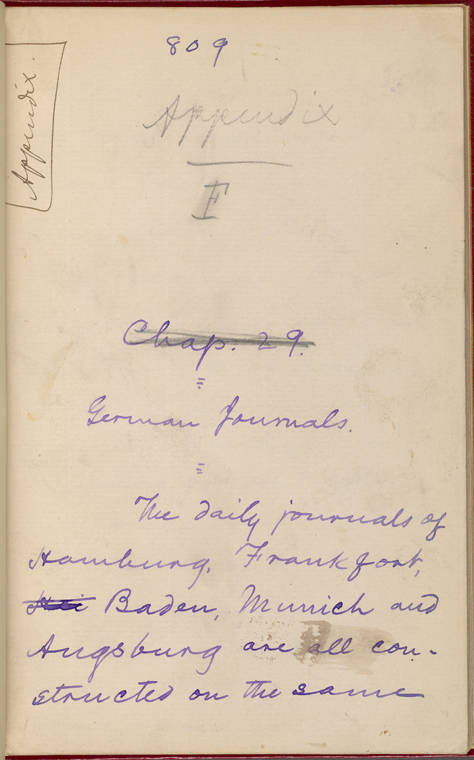 809
Appendix.
Appendix
F
Chap. 29.
German Journals.
The daily journals of
Hamburg, Frankfort,
Baden, Munich and
Augsburg are all con-
structed on the same